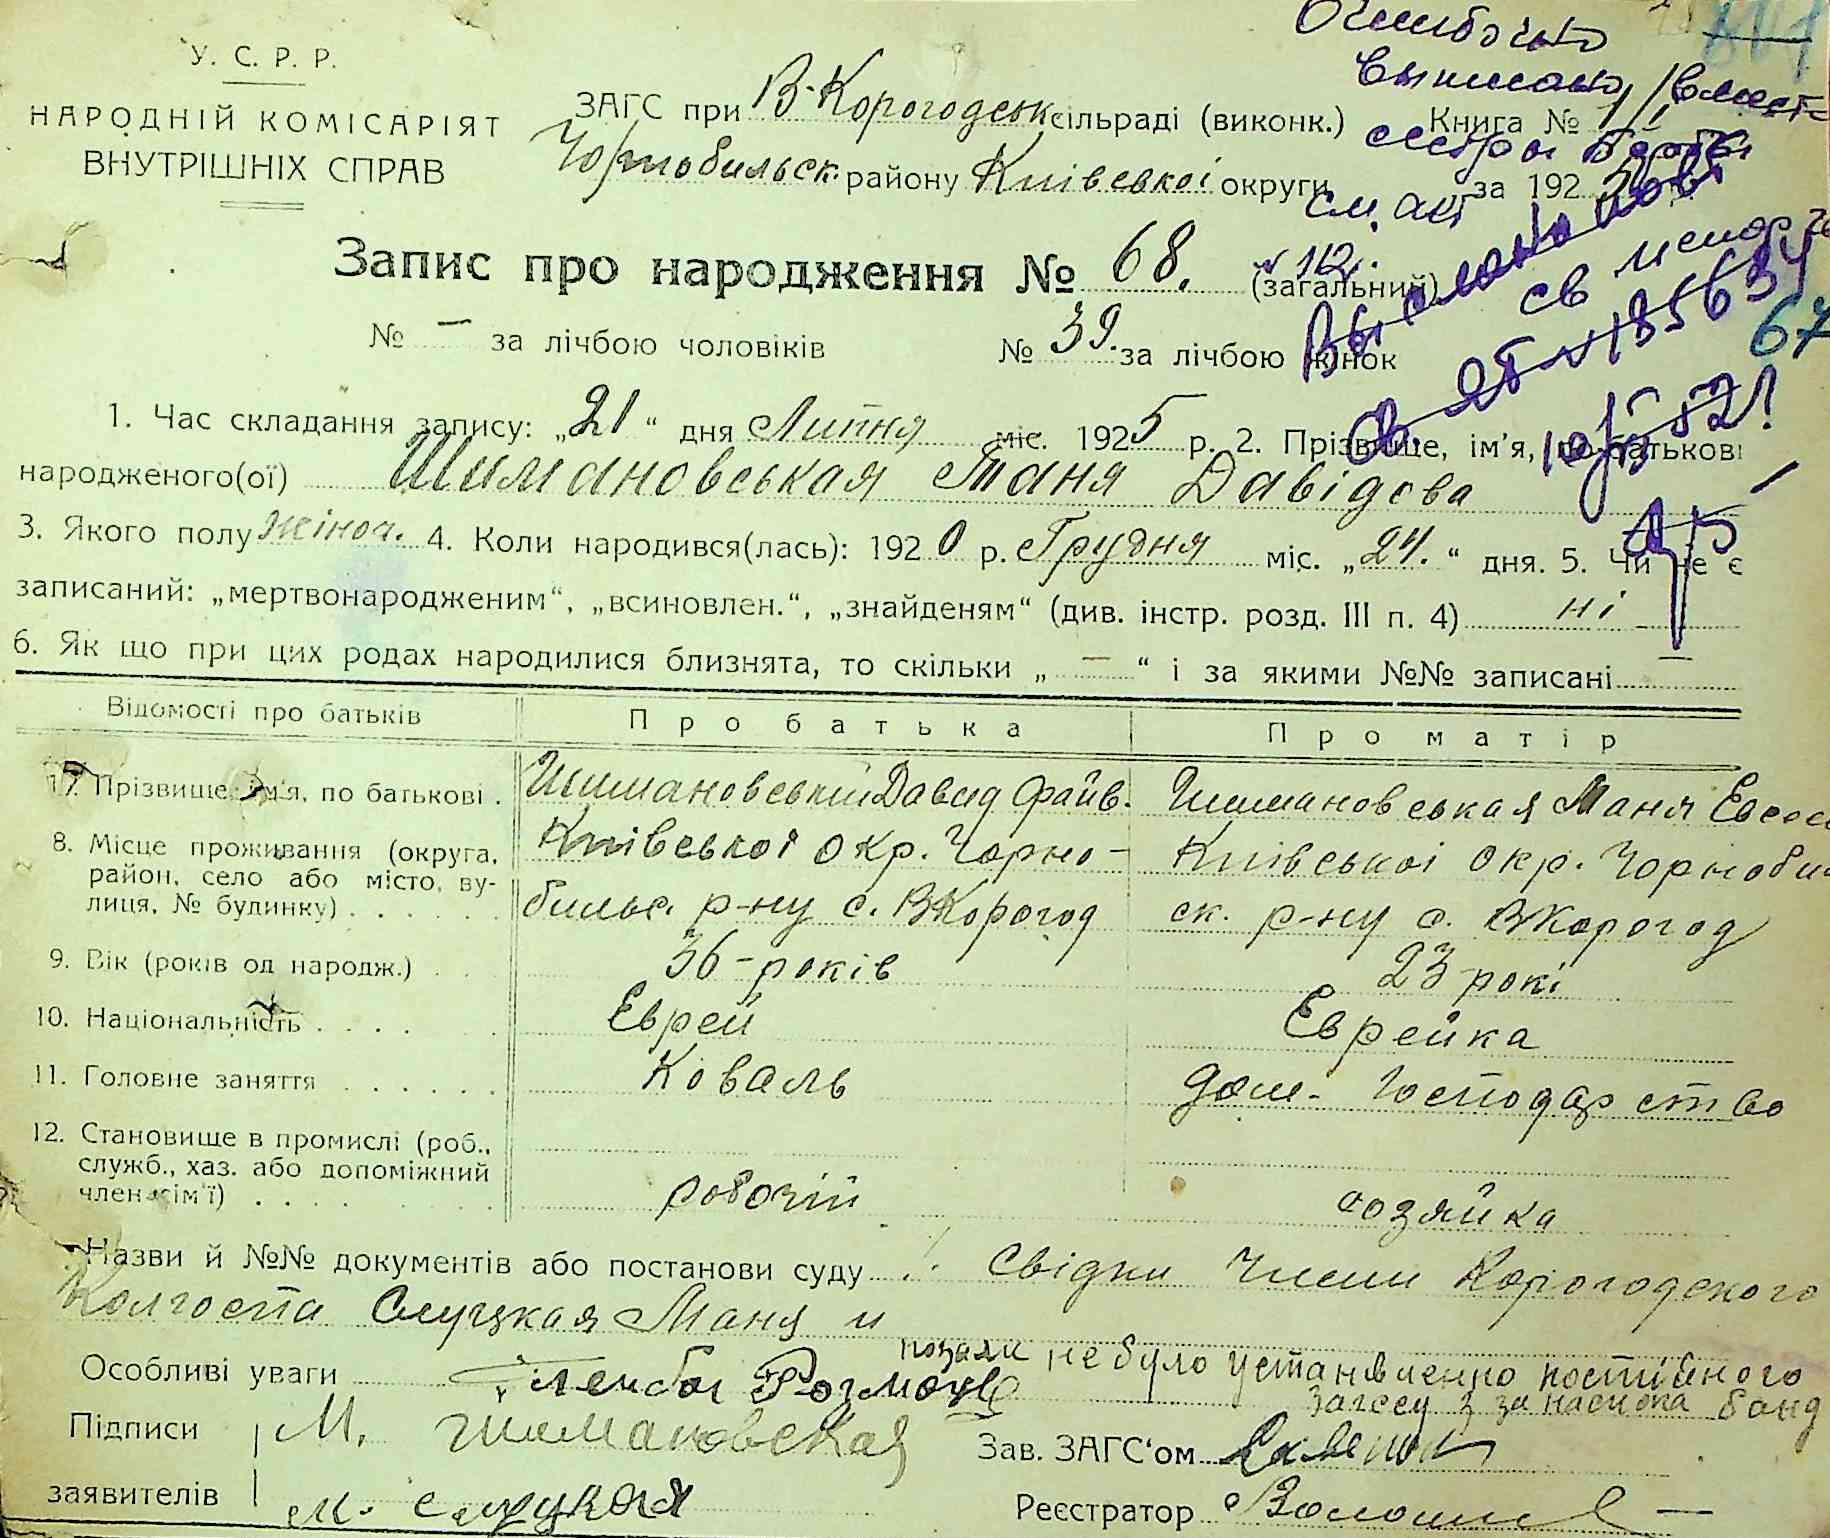 У. С. Р. Р.
НАРОДНІЙ КОМІСАРІЯТ
ВНУТРІШНІХ СПРАВ
Ошибочно
выписано вместо
сестры
см. акт
№ 112.
67
ЗАГС при В-Корогодськ сільраді (виконк.) Книга № 1
Чорнобильськ. району Київської округи за 1925
Запис про народження № 68. (загальний)
№ — за лічбою чоловіків № 39. за лічбою жінок
1. Час складання запису: „21“ дня Липня міс. 1925 р. 2. Прізвище, ім'я, по батькові
народженого(ої) Шимановськая Таня Давідова
3. Якого полу жіноч. 4. Коли народився(лась): 1920 р. Грудня міс. „24.“ дня. 5. Чи не є
записаний: „мертвонародженим“, „всиновлен.“, „знайденям“ (див. інстр. розд. III п. 4) ні
6. Як що при цих родах народилися близнята, то скільки „—“ і за якими №№ записані —
Відомості про батьків Про батька Про матір
7. Прізвище, ім'я, по батькові . Шимановський Давид Файв. Шимановськая Маня
8. Місце проживання (округа, район, село або місто, вулиця, № будинку) . . . . . .
Київської окр. Чорно-
бильс. р-ну с. ВКорогод
Київської окр. Чорноби
ск. р-ну с. ВКорогод
9. Вік (років од народж.) . . 36-років 23 рокі
10. Національність . . . . Еврей Еврейка
11. Головне заняття . . . . . . Коваль дом. Господарство
12. Становище в промислі (роб., служб., хаз. або допоміжний член сім'ї) . . . .
робочій хозяйка
Назви й №№ документів або постанови суду Свідки Члени Корогодского
Колгоспа Слуцкая Маня и
Особливі уваги не було установленно постійного
Загсу з за банд
Підписи М. Шимановская Зав. ЗАГС'ом
заявителів М. Слуцкая Реєстратор